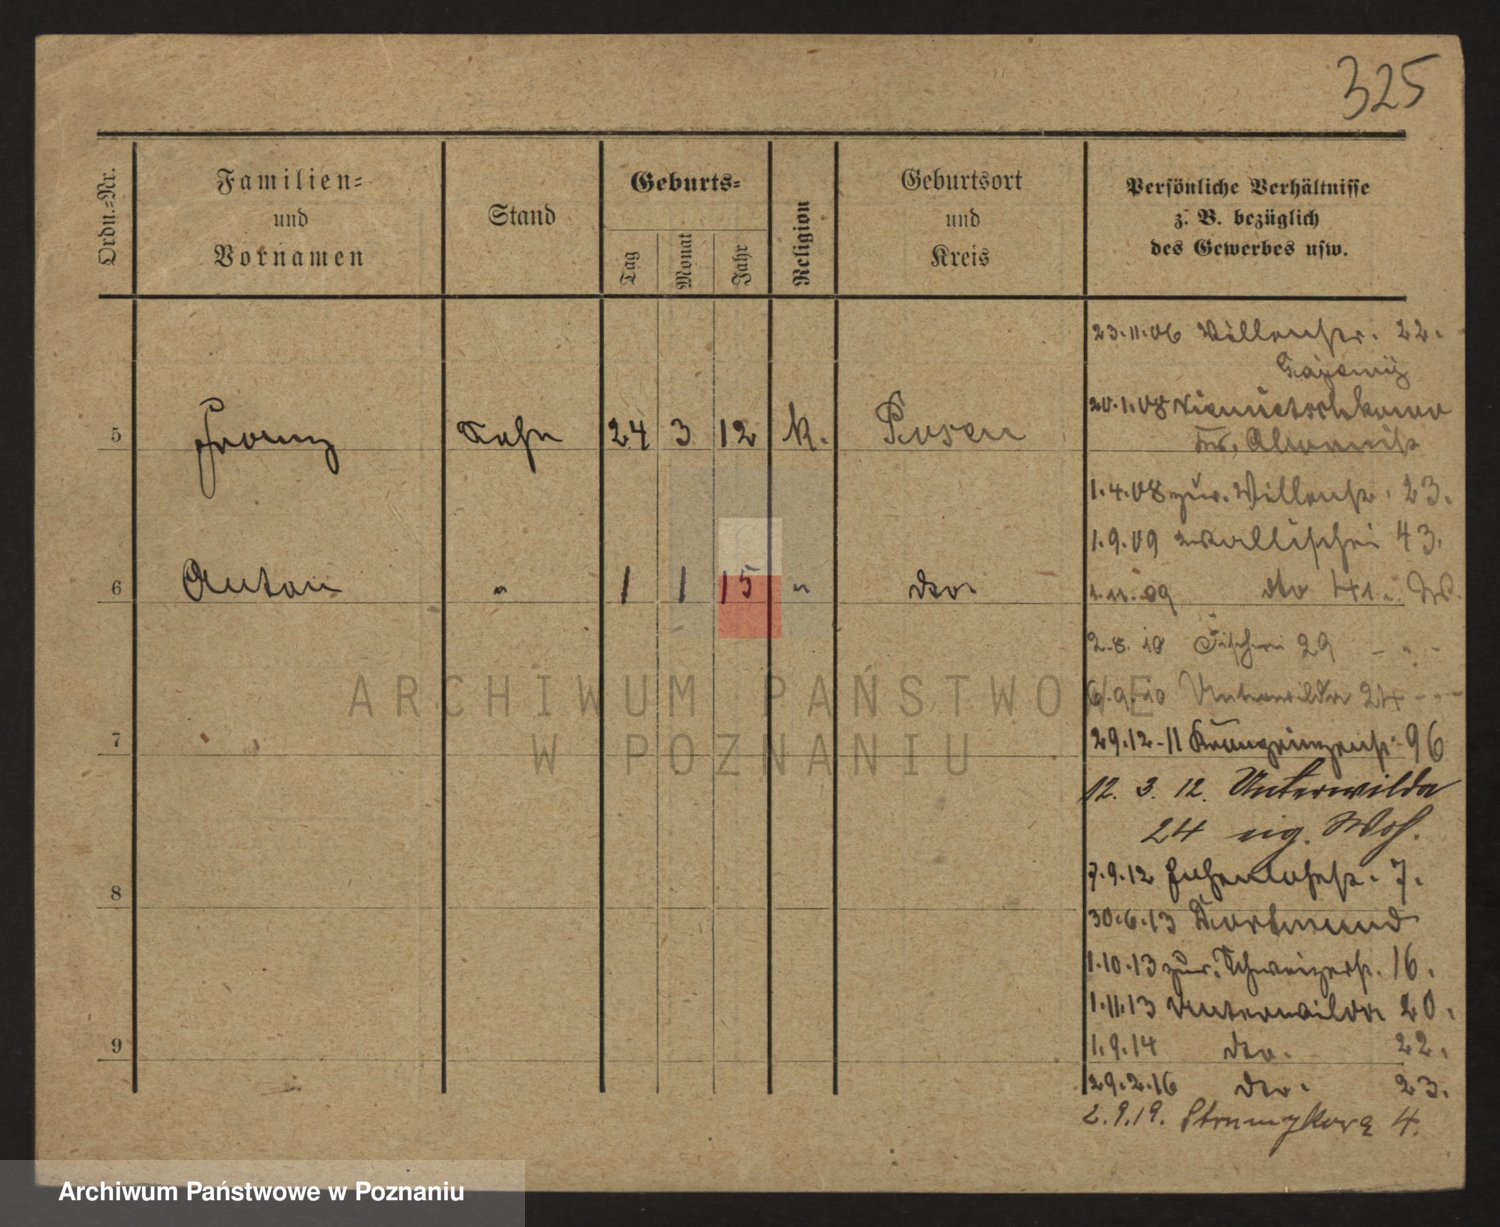 325
Ordn.-Nr.
Familien-
und
Vornamen
Stand
Geburts-
Tag
Monat
Jahr
Religion
Geburtsort
und
Kreis
Persönliche Verhältnisse
z. B. bezüglich
des Gewerbes usw.
23.11.06 22.
20.1.08
5 Franz Sohn 24 3 12 k. Posen
1.4.08 zur. 23.
1.9.09 Wallischei 43.
6 Anton " 1 1 15 " do.
1.11.09 do 41.
2.8.10 Fischerei 29 - " -
6.9.10 Unterwilda 24 - " -
7
29.12.11 Kronprinzenstr. 96
12. 3. 12. Unterwilda
24 eig. Woh.
7.9.12 Hohenlohestr. 7.
8
30.6.13 Dortmund
1.10.13 zur. Schweizerstr. 16.
1.11.13 Unterwilda 20.
9
1.9.14 do. 22.
29.2.16 do. 23.
2.9.19. Strumykowa 4.
ARCHIWUM PAŃSTWOWE
W POZNANIU
Archiwum Państwowe w Poznaniu